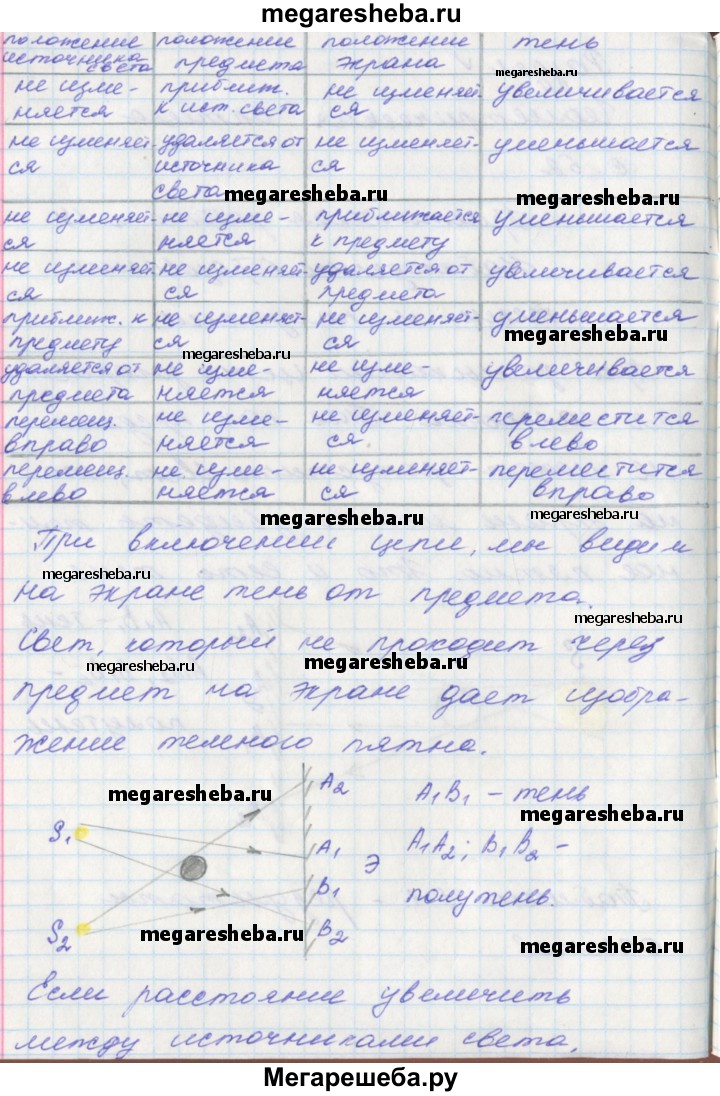 megaresheba.ru
положение источника света | положение предмета | положение экрана | тень
не изменяется | приближ. к ист. света | не изменяется | увеличивается
megaresheba.ru
не изменяется | удаляется от источника света | не изменяется | уменьшается
megaresheba.ru
megaresheba.ru
не изменяется | не изменяется | приближается к предмету | уменьшается
не изменяется | не изменяется | удаляется от предмета | увеличивается
приближ. к предмету | не изменяется | не изменяется | уменьшается
megaresheba.ru
megaresheba.ru
удаляется от предмета | не изменяется | не изменяется | увеличивается
перемещ. вправо | не изменяется | не изменяется. | переместится влево
перемещ. влево | не изменяется | не изменяется | переместится вправо
megaresheba.ru
megaresheba.ru
При включении цепи, мы видим
megaresheba.ru
на экране тень от предмета.
Свет, который не проходит через
megaresheba.ru
megaresheba.ru
предмет на экране дает изобра-
жение темного пятна.
megaresheba.ru
megaresheba.ru
S1
S2
A2
A1
B1
B2
Э
A1B1 – тень
A1A2; B1B2 –
полутень.
megaresheba.ru
megaresheba.ru
Если расстояние увеличить
между источниками света,
Мегарешеба.ру